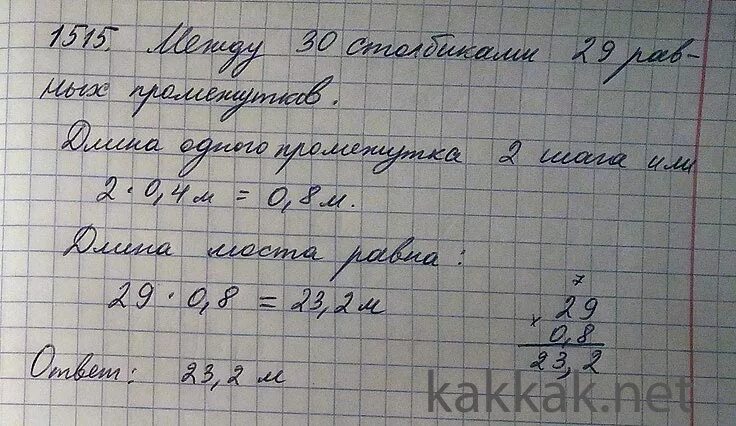 1515. Между 30 столбиками 29 рав-
ных промежутков.
Длина одного промежутка 2 шага или
2 · 0,4 м = 0,8 м.
Длина моста равна:
29 · 0,8 = 23,2 м
7
29
×
0,8
23,2
Ответ: 23,2 м
kakkak.net